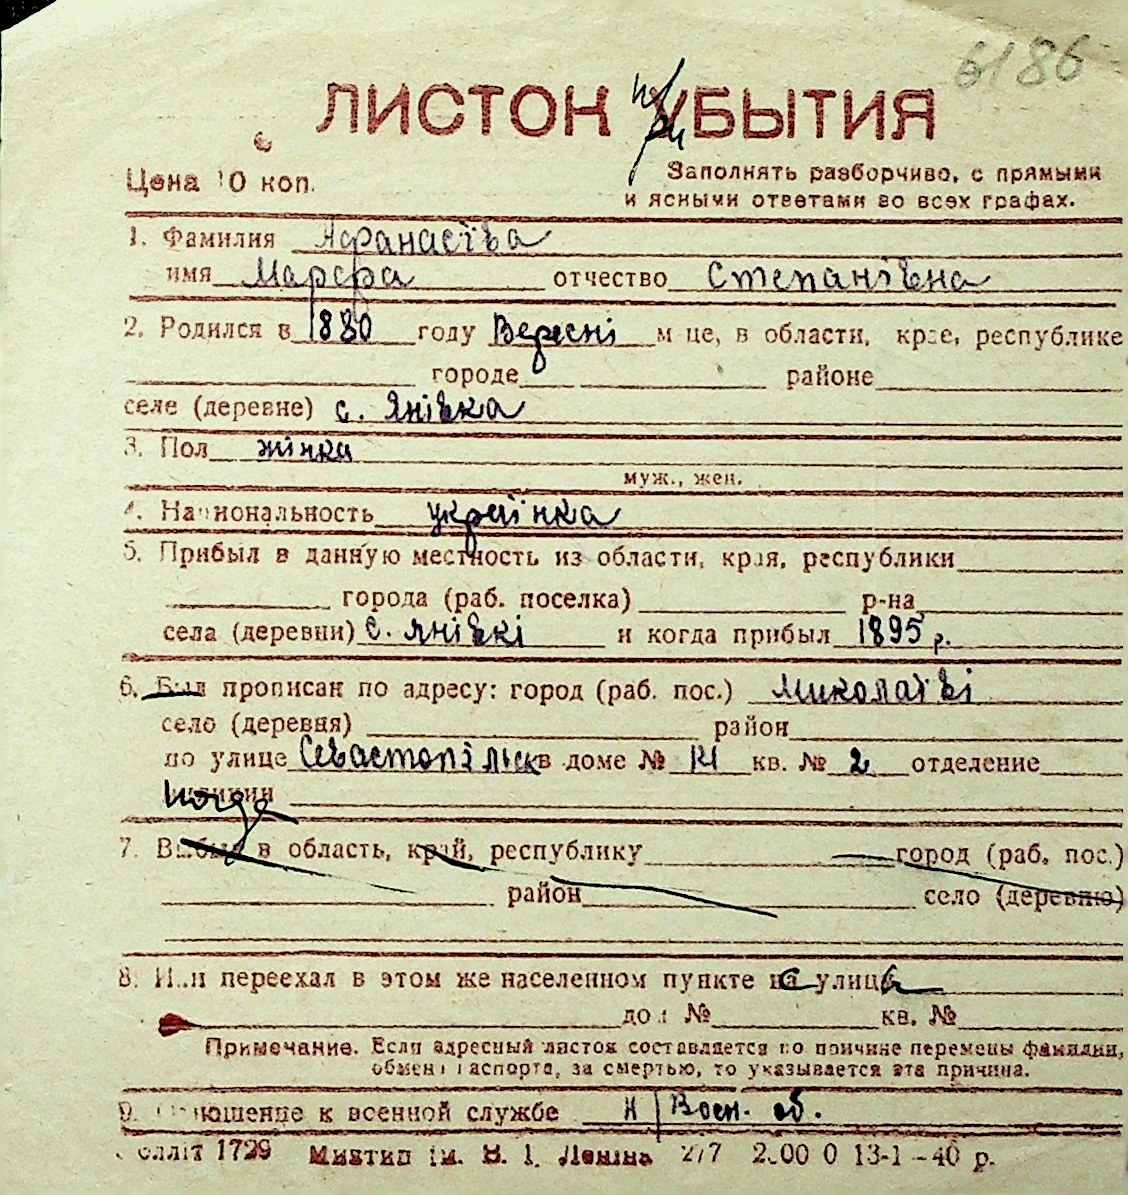 6186
ЛИСТОК УБЫТИЯ
при
Цена 10 коп.
Заполнять разборчиво, с прямыми
и ясными ответами во всех графах.
1. Фамилия Афанасїва
имя Марфа отчество Степанівна
2. Родился в 1880 году Вересні м-це, в области, крае, республике
городе районе
селе (деревне) с. Янівка
3. Пол жінка
муж., жен.
4. Национальность українка
5. Прибыл в данную местность из области, края, республики
города (раб. поселка) р-на
села (деревни) с. Янівкі и когда прибыл 1895 р.
6. Был прописан по адресу: город (раб. пос.) Миколаїві
село (деревня) район
по улице Севастопільск в доме № 141 кв. № 2 отделение
милиции
7. Выбыл в область, край, республику город (раб. пос.)
район село (деревню)
8. Или переехал в этом же населенном пункте на улицу
дом № кв. №
Примечание. Если адресный листок составляется по причине перемены фамилии,
обмена паспорта, за смертью, то указывается эта причина.
9. Отношение к военной службе н/Воен. об.
оллїт 1729 Миктип ім. В. І. Леніна 277 2000 0 13-1-40 р.